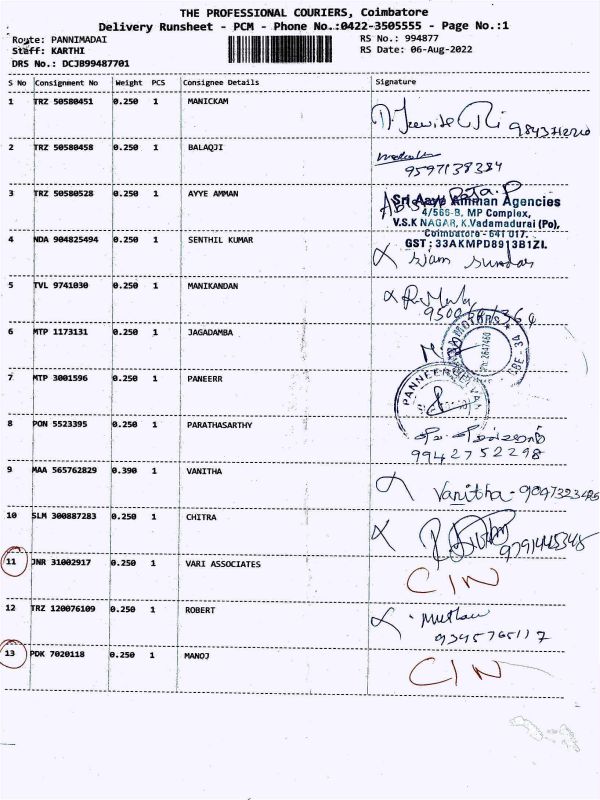 THE PROFESSIONAL COURIERS, Coimbatore
Delivery Runsheet - PCM - Phone No.:0422-3505555 - Page No.:1
Route: PANNIMADAI RS No.: 994877
Staff: KARTHI RS Date: 06-Aug-2022
DRS No.: DCJB99487701
S No Consignment No Weight PCS Consignee Details Signature
1 TRZ 50580451 0.250 1 MANICKAM
2 TRZ 50580458 0.250 1 BALAQJI
9597138384
3 TRZ 50580528 0.250 1 AYYE AMMAN
Sri Aaye Amman Agencies
4/566-B, MP Complex,
V.S.K NAGAR, K.Vadamadurai (Po),
Coimbatore - 641 017.
GST : 33AKMPD8913B1ZI.
4 NDA 904825494 0.250 1 SENTHIL KUMAR
Siam Sundar
5 TVL 9741030 0.250 1 MANIKANDAN
6 MTP 1173131 0.250 1 JAGADAMBA
7 MTP 3001596 0.250 1 PANEERR
8 PON 5523395 0.250 1 PARATHASARTHY
9942752298
9 MAA 565762829 0.390 1 VANITHA
Vanitha - 9097323426
10 SLM 300887283 0.250 1 CHITRA
11 JNR 31002917 0.250 1 VARI ASSOCIATES CIN
12 TRZ 120076109 0.250 1 ROBERT
13 PDK 7020118 0.250 1 MANOJ CIN